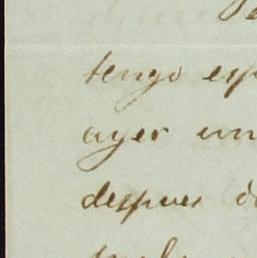 tengo esp
ayer un
despues d